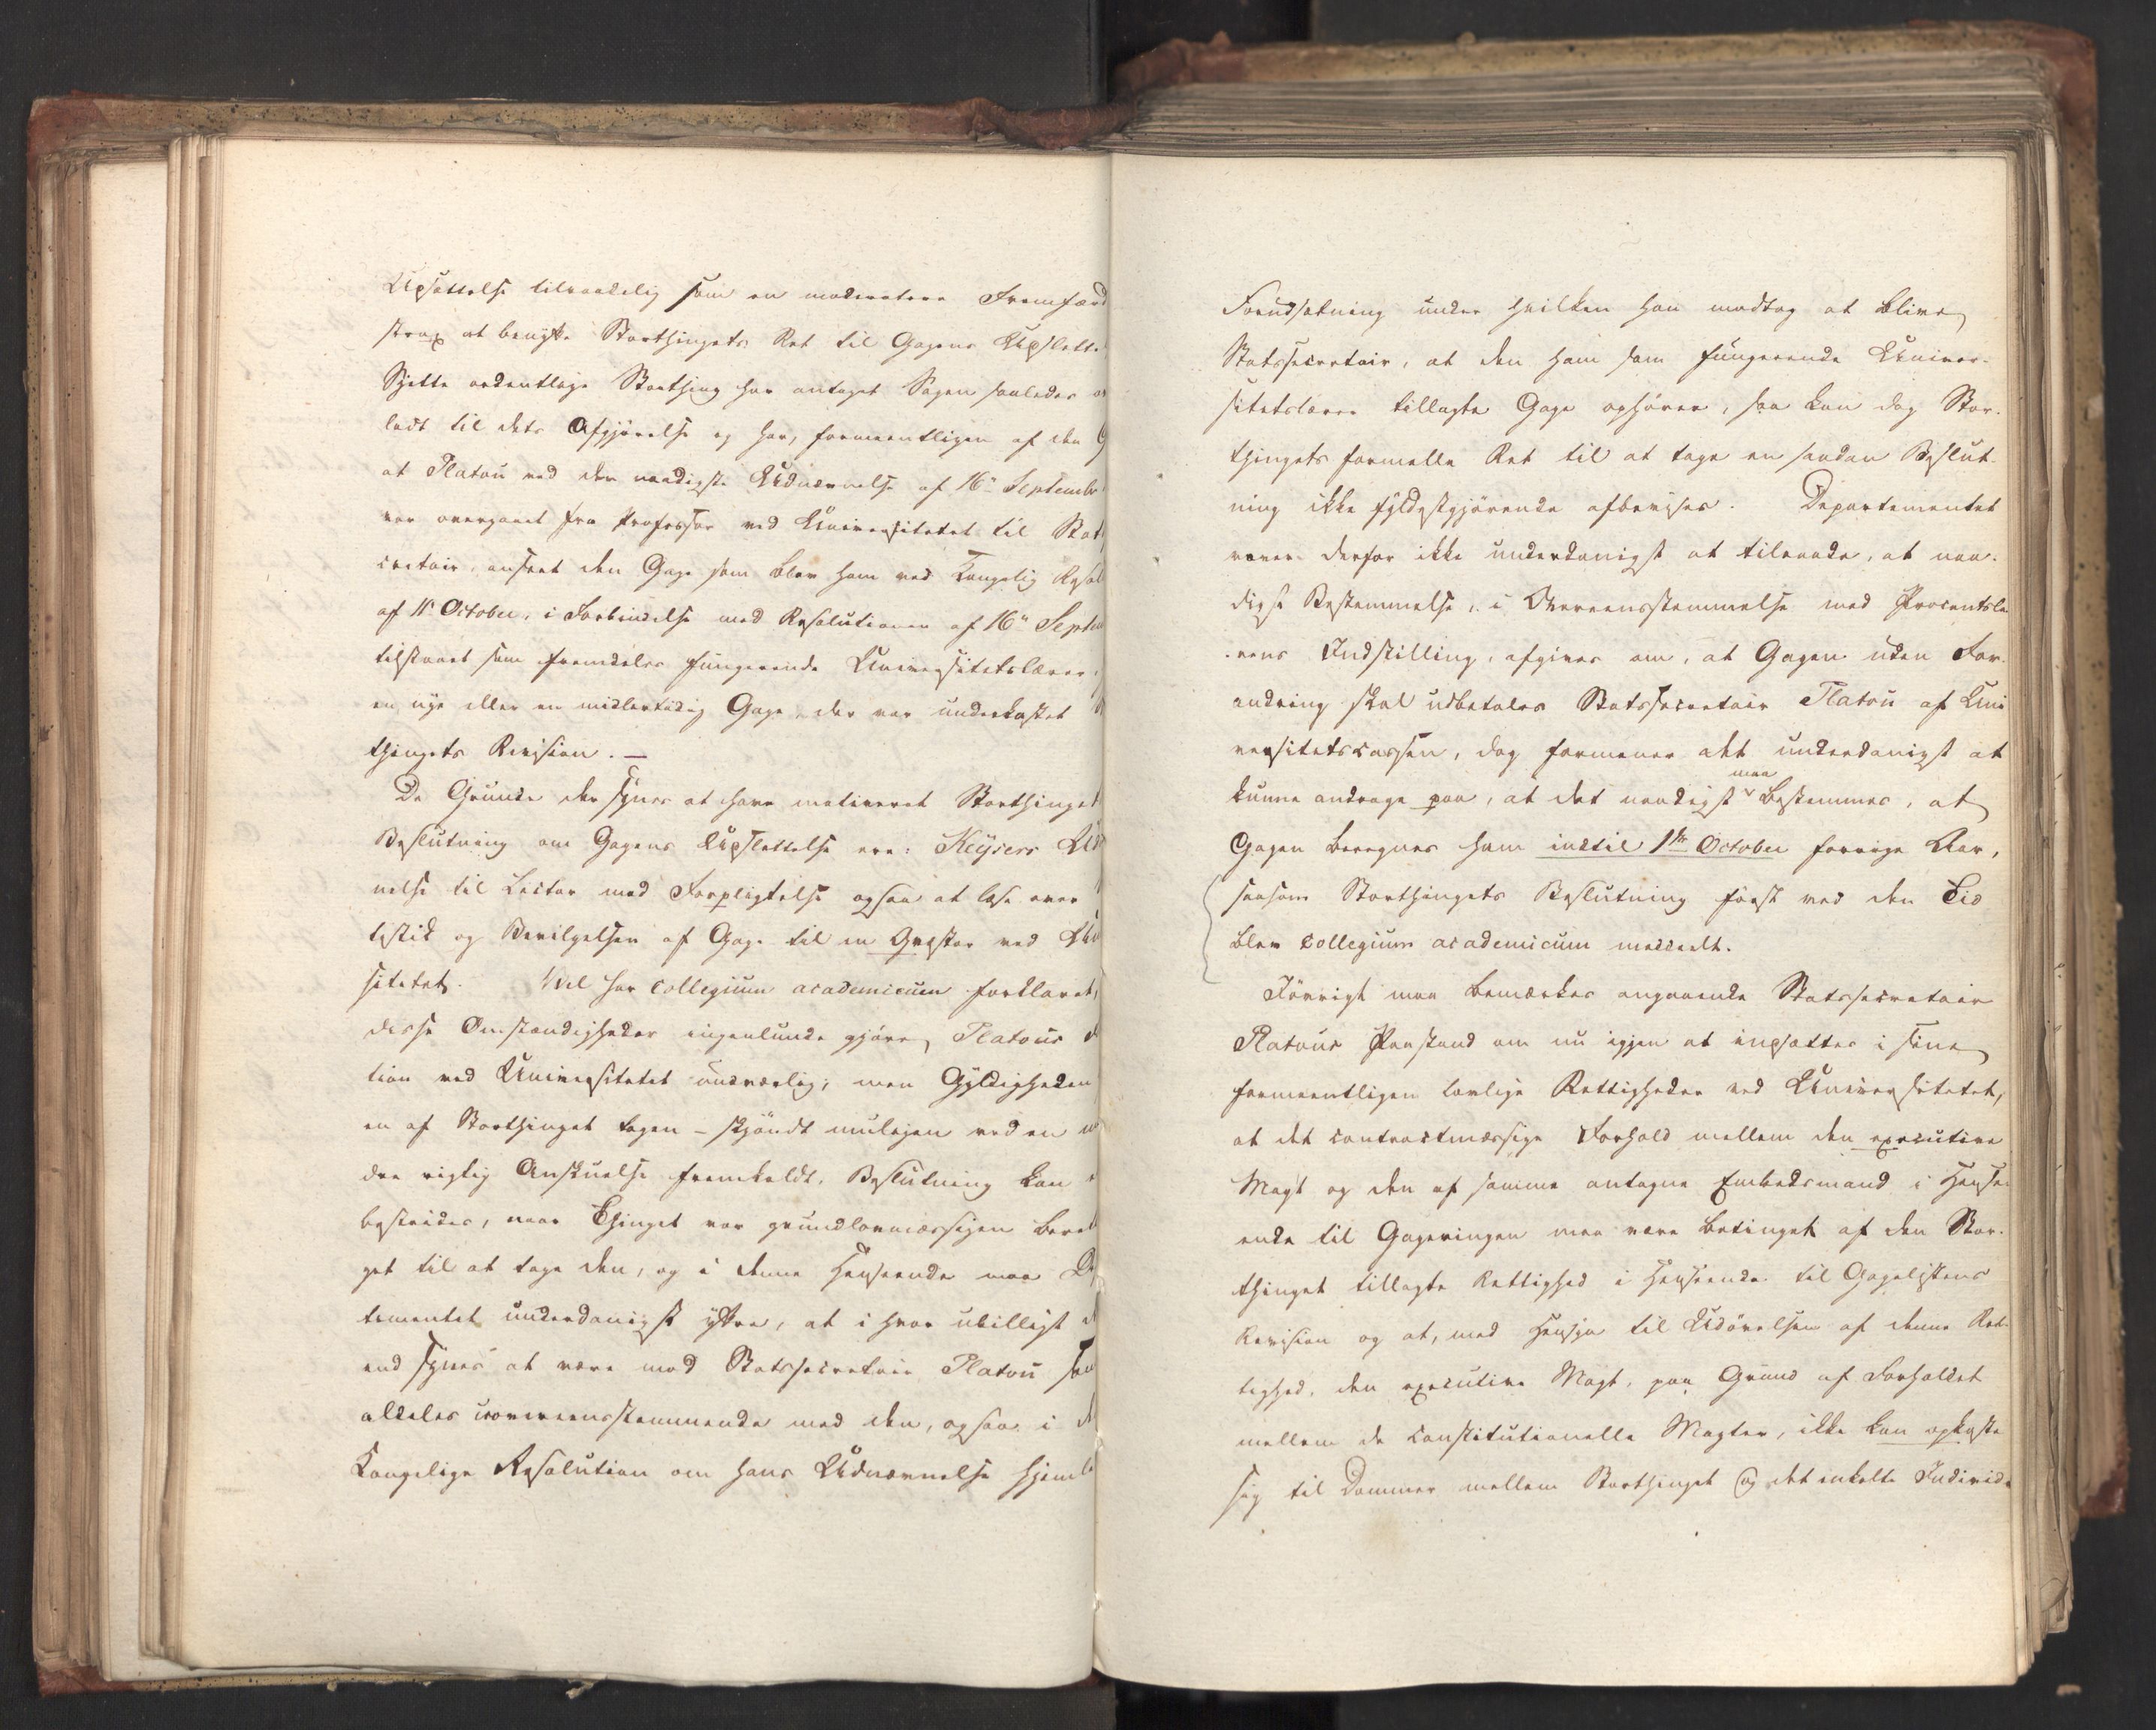 Udsættelse tilraadelig som en moderatere Fremfærd
strax at benytte Storthingets Ret til Gagens Udslette
Sjette ordentlige Storthing har antaget Sagen saaledes
ladt til dets Afgjörelse og har, formeentligen af den G
at Platou ved den naadigste Udnævnelse af 16de Septembr
var overgaaet fra Professor ved Universitetet til Stats
cretair, anseet den Gage som blev ham ved Kongelig Resol
af 11 October, i Forbindelse med Resolutionen af 16de Septem
tilstaaet som fremdeles fungerende Universitetslærer,
en nye eller en midlertidig Gage, der var underkastet
thingets Revision. —
De Grunde der synes at have motiveret Storthinget
Beslutning om Gagens Udslettelse ere: Keysers Ud
nelse til Lector med Forpligtelse ogsaa at læse over
tistik og Bevilgelsen af Gage til en Qvæstor ved Uni
sitetet. Vel har Collegium academicum forklaret,
disse Omstændigheder ingenlunde gjöre Platous
tion ved Universitetet undværlig; men Gyldigheden
en af Storthinget tagen - skjöndt muligen ved en
dre rigtig Anskuelse fremkaldt, Beslutning kan
bestrides, naar Thinget var grundlovmæssigen beret
get til at tage den, og i denne Henseende maa De
tementet underdanigst yttre, at i hvor ubilligt
end synes at være mod Statssecretair Platou
aldeles uovereensstemmende med den, ogsaa i d
Kongelige Resolution om hans Udnævnelse hjeml
Forudsætning under hvilken han modtog at blive
Statssecretair, at den ham som fungerende Univer-
sitetslærer tillagte Gage ophörer, saa kan dog Stor-
thingets formelle Ret til at tage en saadan Beslut-
ning ikke fyldestgjörende afbevises. Departementet
vover derfor ikke underdanigst at tilraade, at naa-
digst Bestemmelse, i Overeensstemmelse med Procantsle
rens Indstilling, afgives om, at Gagen uden For-
andring skal udbetales Statssecretair Platou af Uni
versitetscassen, dog formener det underdanigst at
kunne andrage paa, at det naadigst maa bestemmes, at
Gagen beregnes ham indtil 1ste October forrige Aar,
saasom Storthingets Beslutning först ved den Tid
blev Collegium academicum meddeelt.
Iövrigt maa bemærkes angaaende Statssecretair
Platous Paastand om nu igjen at indsættes i sine
formeentligen lovlige Rettigheder ved Universitetet,
at det contractmæssige Forhold mellem den executive
Magt og den af samme antagne Embedsmand i Hense-
ende til Gageringen maa være betinget af den Stor-
thinget tillagte Rettighed i Henseende til Gagelistens
Revision og at, med Hensyn til Udövelsen af denne Ret-
tighed, den executive Magt, paa Grund af Forholdet
mellem de constitutionelle Magter, ikke kan opkaste
sig til Dommer mellem Storthinget og det enkelte Individ.